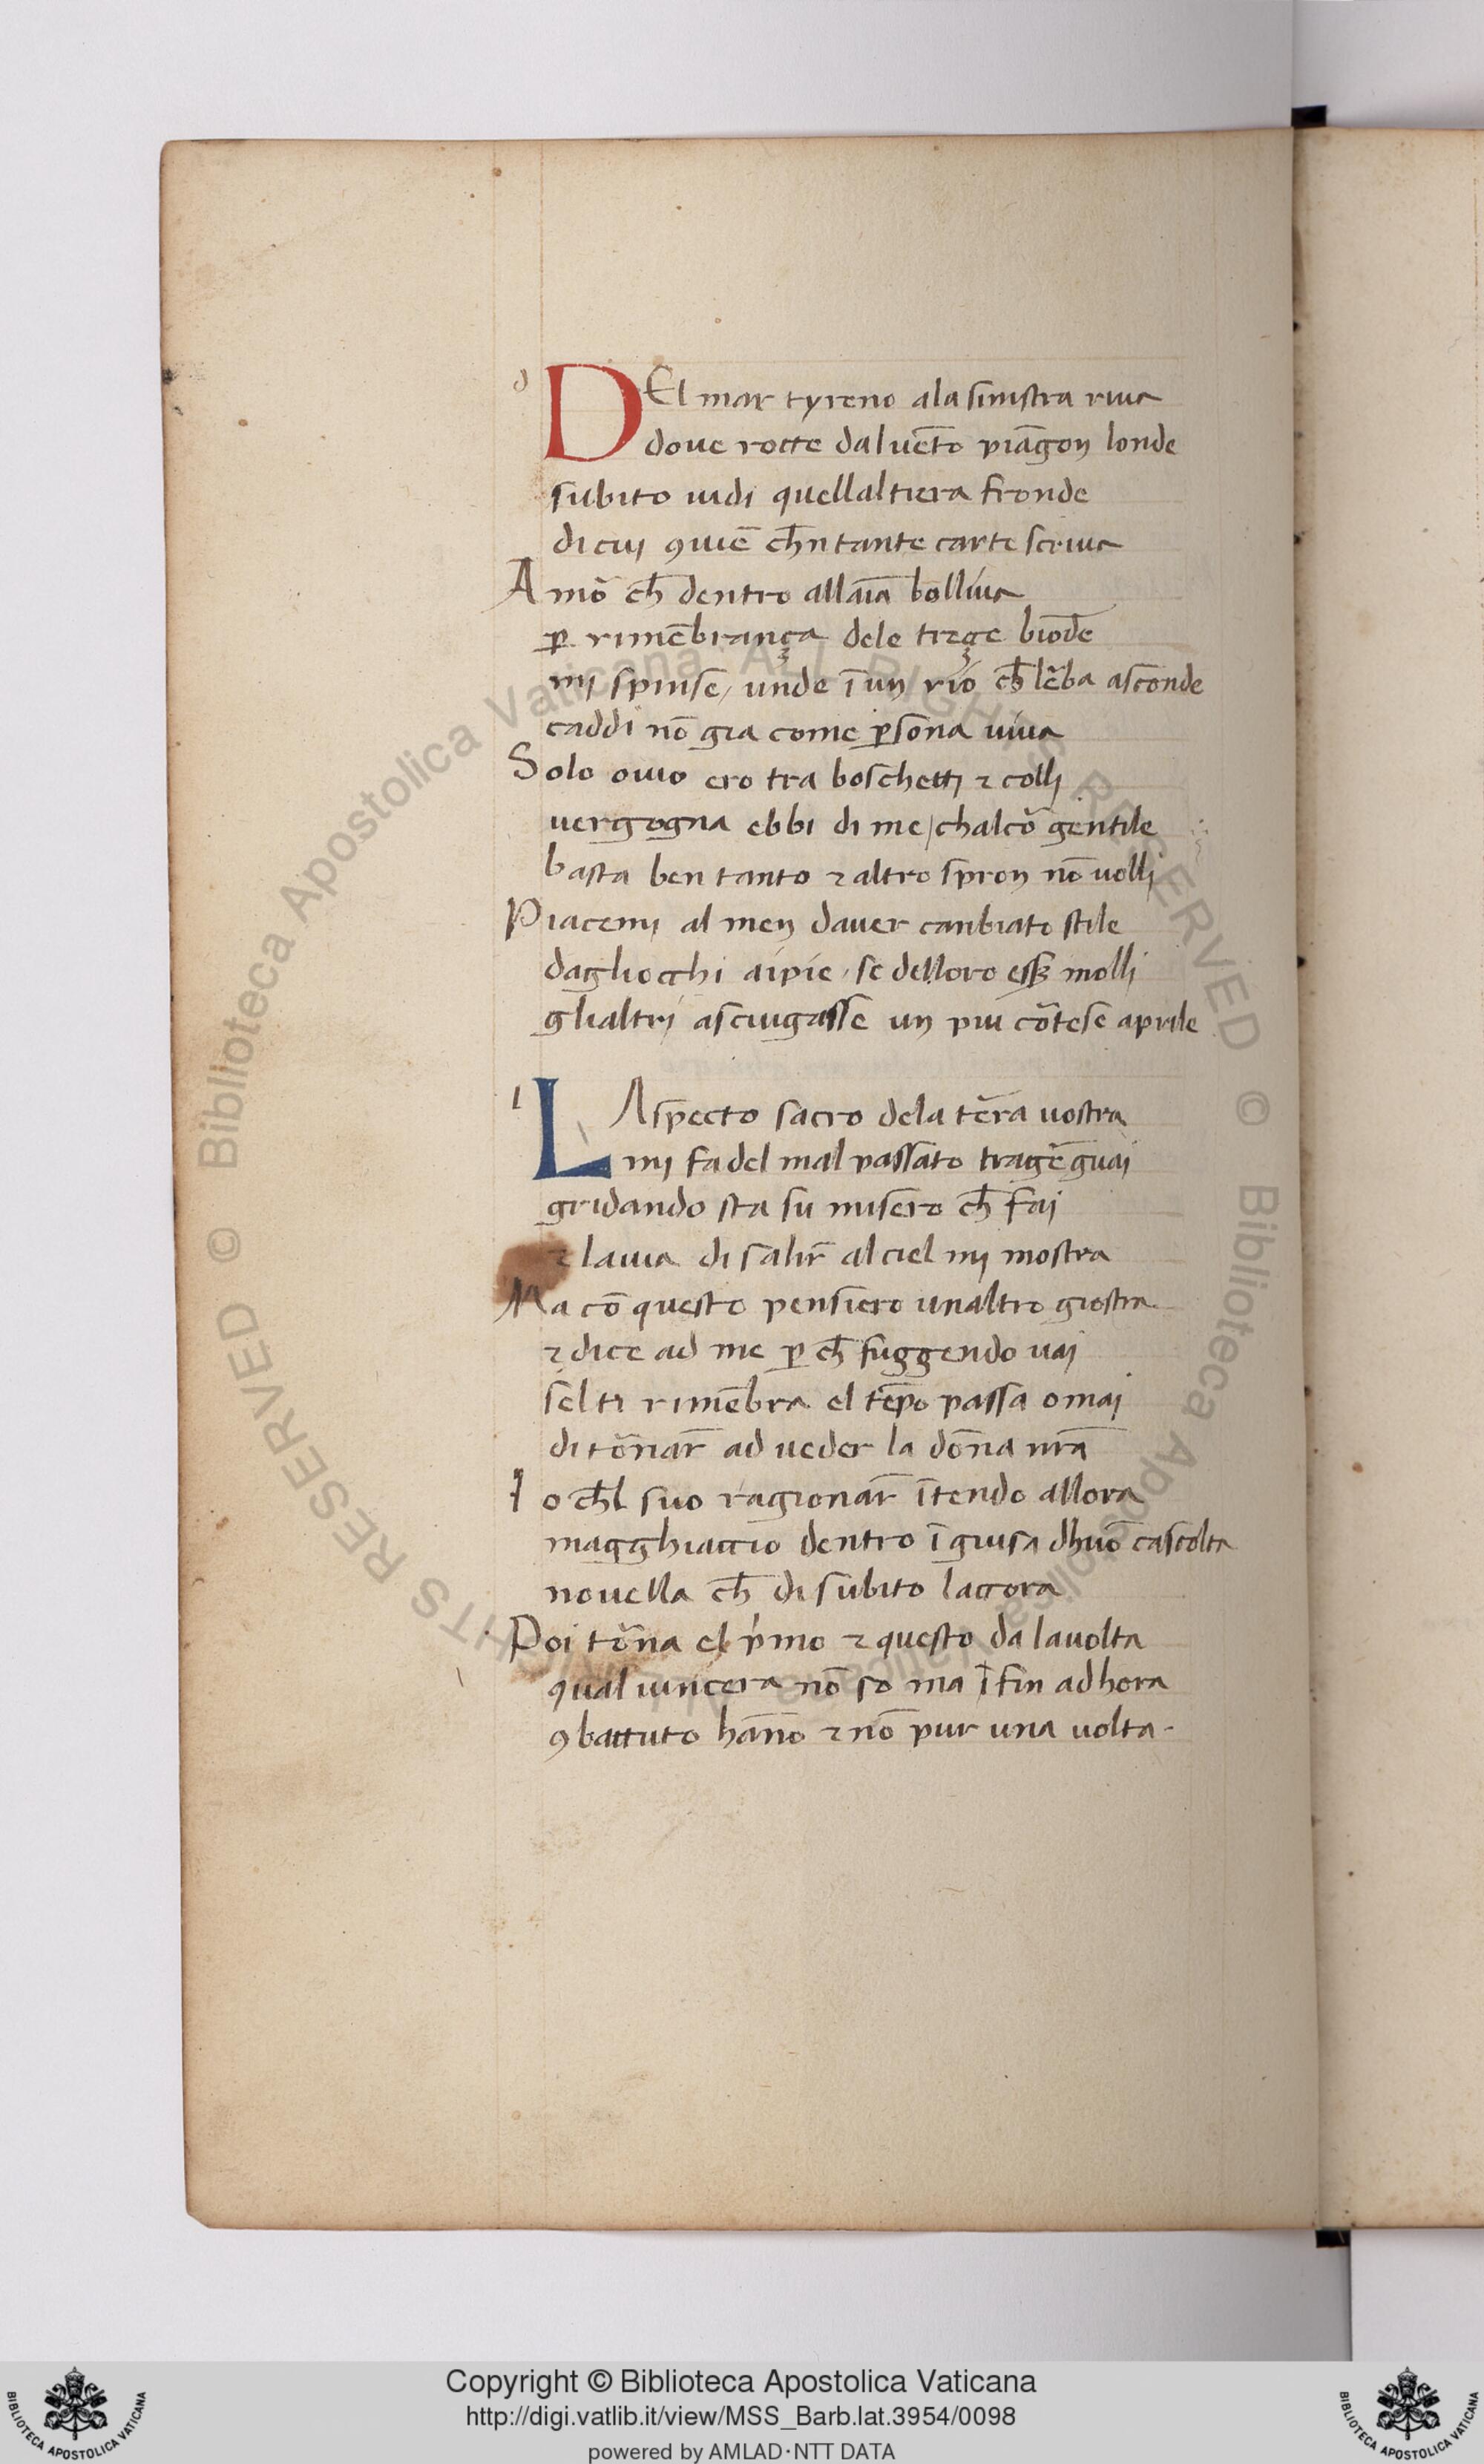 d
DEl mar tyreno ala sinistra riua
doue rocte dal uēto piāgon londe
subito uidi quellaltiera fronde
di cuj ꝯuiē ch̄n tante carte scriua
Amõ ch̄ dentro allaīa bolliua
ꝑ rimēbrança dele treçe biōde
mj spinse, unde ī un rio ch̄ lẽba asconde
caddi nō gia come ꝑsona uiua
Solo ouio ero tra boschettj ⁊ collj
uergogna ebbi di me / chalcõ gentile
basta ben tanto ⁊ altro spron nō uollj
Piacemj al men dauer canbiato stile
dagliocchi aipie, se delloro eẞ mollj
glialtrj asciugasse un piu cõtese aprile
l
LAspecto sacro dela tẽra uostra
mj fa del mal passato tragẽ guaj
gridando sta su misero ch̄ faj
⁊ la uia di salir̄ al ciel mj mostra
Ma cō questo pensiero unaltro giostra
⁊ dice ad me ꝑ ch̄ fuggendo uaj
sel ti rimēbra el tēpo passa omaj
di tõnar̄ ad ueder la dōna nr̄a
Io ch̄l suo ragionar̄ ītendo allora
magghiaccio dentro ī guisa dhuō cascolta
nouella ch̄ di subito laccora
Poi tõna el pͥmo ⁊ questo da lauolta
qual uincera nō so ma īfin adhora
ꝯbattuto hāno ⁊ nō pur una uolta.
© Biblioteca Apostolica Vaticana ALL RIGHTS RESERVED
© Biblioteca Apostolica Vaticana ALL RIGHTS RESERVED
Copyright © Biblioteca Apostolica Vaticana
http://digi.vatlib.it/view/MSS_Barb.lat.3954/0098
powered by AMLAD·NTT DATA
BIBLIOTECA APOSTOLICA VATICANA
BIBLIOTECA APOSTOLICA VATICANA